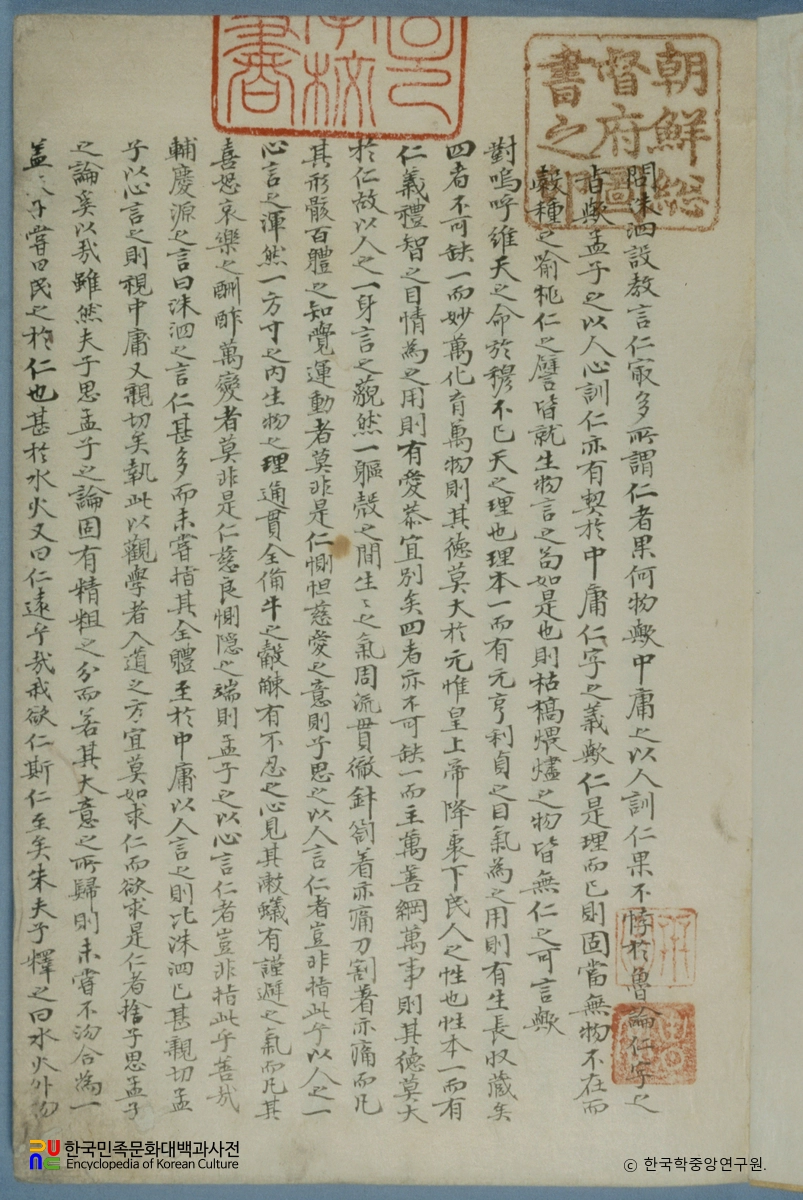 朝鮮總
督府圖
書之印
問洙泗設教言仁最多所謂仁者果何物歟中庸之以人訓仁果不悖於魯論仁字之
旨歟孟子之以人心訓仁亦有契於中庸仁字之義歟仁是理而已則固當無物不在而
穀種之喻桃仁之譬皆就生物言之苟如是也則枯槁煨燼之物皆無仁之可言歟
對嗚呼維天之命於穆不已天之理也理本一而有元亨利貞之目氣為之用則有生長收藏矣
四者不可缺一而妙萬化育萬物則其德莫大於元惟皇上帝降衷下民人之性也性本一而有
仁義禮智之目情為之用則有愛恭宜別矣四者亦不可缺一而主萬善綱萬事則其德莫大
於仁故以人之一身言之藐然一軀殼之間生〻之氣周流貫徹針劄着亦痛刀割著亦痛而凡
其形骸百體之知覺運動者莫非是仁惻怛慈愛之意則子思之以人言仁者豈非指此乎以人之一
心言之渾然一方寸之內生物之理通貫全備牛之觳觫有不忍之心見其鬪蟻有謹避之氣而凡其
喜怒哀樂之酬酢萬變者莫非是仁慈良惻隱之端則孟子之以心言仁者豈非指此乎善哉
輔慶源之言曰洙泗之言仁甚多而未嘗指其全體至於中庸以人言之則比洙泗已甚親切孟
子以心言之則視中庸又親切矣執此以觀學者入道之方宜莫如求仁而欲求是仁者捨子思孟子
之論奚以哉雖然夫子思孟子之論固有精粗之分而若其大意之所歸則未嘗不沕合為一
盖夫子嘗曰民之於仁也甚於水火又曰仁遠乎哉我欲仁斯仁至矣朱夫子釋之曰水火外物
한국민족문화대백과사전
Encyclopedia of Korean Culture
ⓒ 한국학중앙연구원.